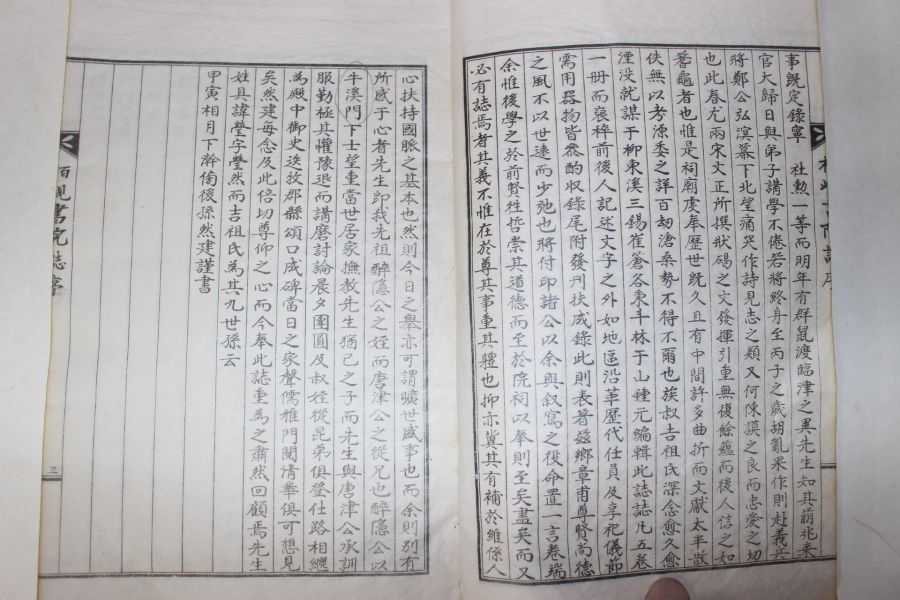 事旣定錄寧 社勲一等而明年有群鼠渡臨津之異先生知其萌兆來
官大歸日與弟子講學不倦若將終身至丙子之歲胡亂果作則赴義兵
將鄭公弘溟幕下北望痛哭作詩見志之類又何陳謨之良而忠愛之切
也此春尤兩宋文正所撰狀碣之文發揮引重無復餘蘊而後人信之如
蓍龜者也惟是祠廟虔奉歷世旣久且有中間許多曲折而文獻太半散
佚無以考源委之詳百劫滄桑勢不得不爾也族叔吉祖氏深念愈久愈
湮没就謀于柳東溪三錫崔蒼各東斗林于山鍾元編輯此誌誌凡五卷
一冊而裒稡前後人記述文字之外如地區沿革歷代任員及享祀儀節
需用器物皆叅酌収錄尾附發刊扶成錄此則表著玆鄉章甫尊賢尚德
之風不以世遠而少弛也將付印諸公以余與叙寫之役命置一言卷端
余惟後學之於前賢徃哲崇其道德而至於院祠以奉則至矣盡矣而又
必有誌焉者其義不惟在於尊其事重其禮也抑亦冀其有補於維係人
心扶持國脈之基本也然則今日之擧亦可謂曠世盛事也而余則別有
所感于心者先生卽我先祖醉隱公之姪而唐津公之從兄也醉隱公以
牛溪門下士望重當世居家撫敎先生猶己之子而先生與唐津公承訓
服勤極其懽豫退而講磨討論晨夕團圓及叔姪從昆弟俱登仕路相繼
為殿中御史迭牧郡縣頌口成碑當日之家聲儒雅門闌清華俱可想見
矣然建每念及此倍切尊仰之心而今奉此誌重為之肅然回顧焉先生
姓具諱瑩字瑩然而吉祖氏為其九世孫云
甲寅相月下澣傍後孫然建謹書
書院誌序
三